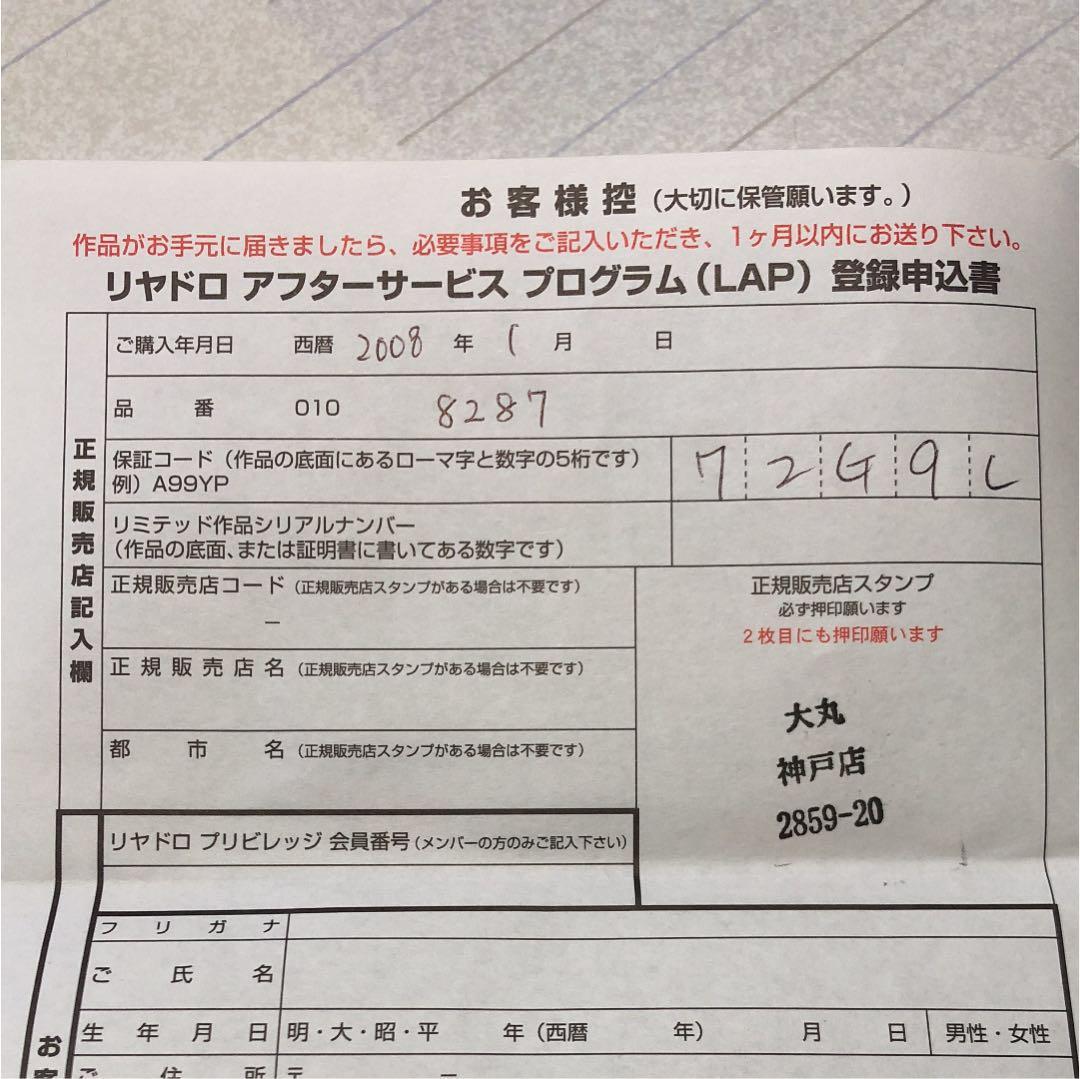 お客様控（大切に保管願います。）
作品がお手元に届きましたら、必要事項をご記入いただき、1ヶ月以内にお送り下さい。
リヤドロ アフターサービス プログラム（LAP）登録申込書
正規販売店記入欄
ご購入年月日 西暦 2008 年 1 月 日
品番 010 8287
保証コード（作品の底面にあるローマ字と数字の5桁です）
例）A99YP
72G9L
リミテッド作品シリアルナンバー
（作品の底面、または証明書に書いてある数字です）
正規販売店コード（正規販売店スタンプがある場合は不要です）
－
正規販売店名（正規販売店スタンプがある場合は不要です）
都市名（正規販売店スタンプがある場合は不要です）
正規販売店スタンプ
必ず押印願います
2枚目にも押印願います
大丸
神戸店
2859-20
リヤドロ プリビレッジ 会員番号（メンバーの方のみご記入下さい）
フリガナ
ご氏名
生年月日 明・大・昭・平 年（西暦 年） 月 日 男性・女性
ご住所 〒 －
お客